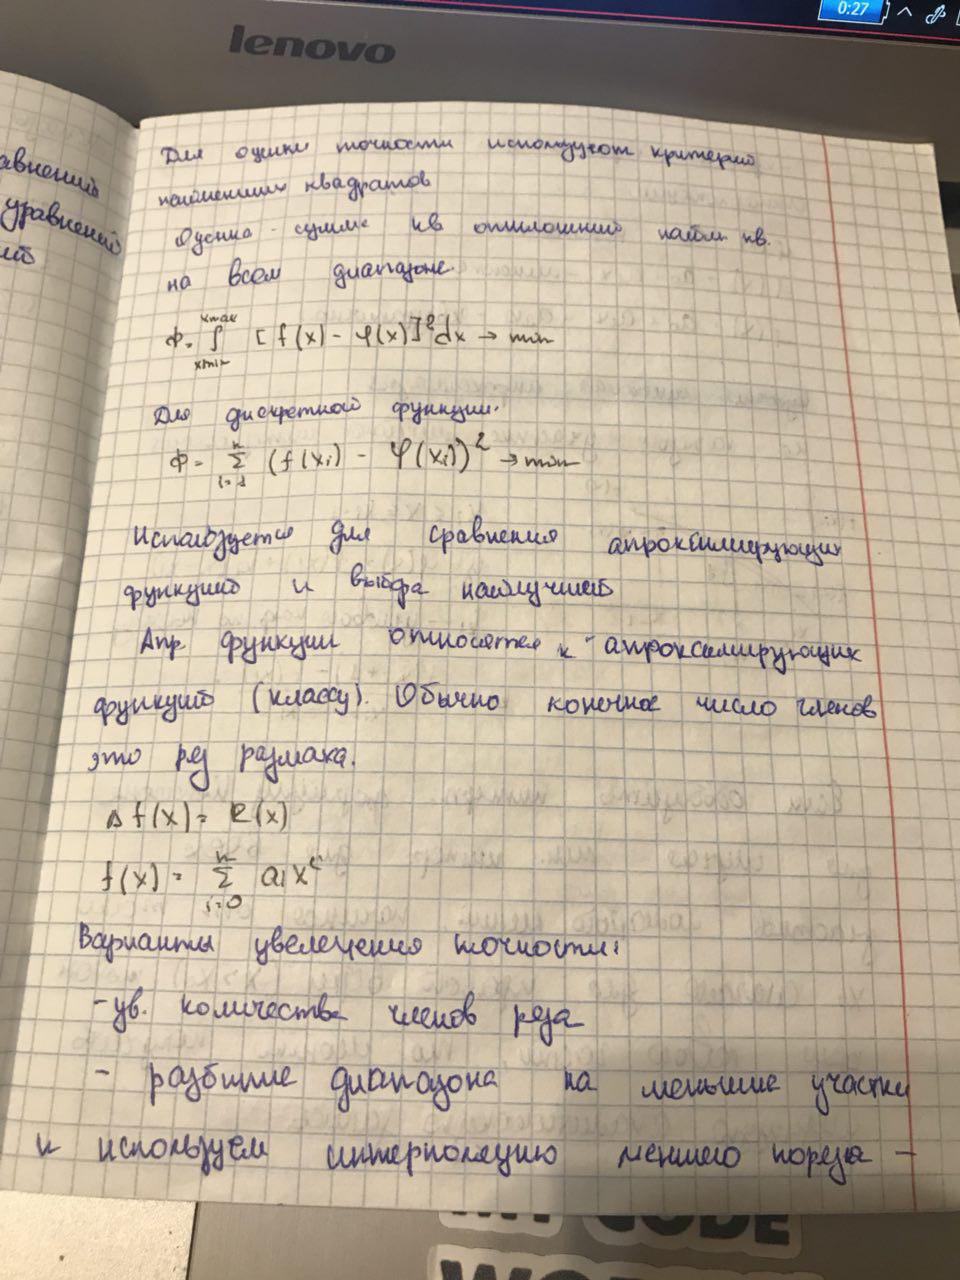 0:27
lenovo
авнений
уравнений
ий
Для оценки точности используют критерий
наименших квадратов
Оценка - сумма кв отклонений кв.
на всем диапазоне.
Ф = ∫ xmax xmin [f(x) - φ(x)]² dx → min
Для дискретной функции.
Ф = Σ n i=1 (f(xi) - φ(xi))² → min
Используется для сравнения апроксимирующих
функций и выбора наилучшей
Апр функции относятся к апроксимирующих
функций (классу). Обычно конечное число членов
это ряд
Δ f(x) = R(x)
f(x) = Σ n i=0 aixⁱ
Варианты увелечения точности:
- ув. количества членов ряда
- разбитие диапазона на меньшие участки
и используем интерполяцию меншего поряда -
MY CODE
WORKS